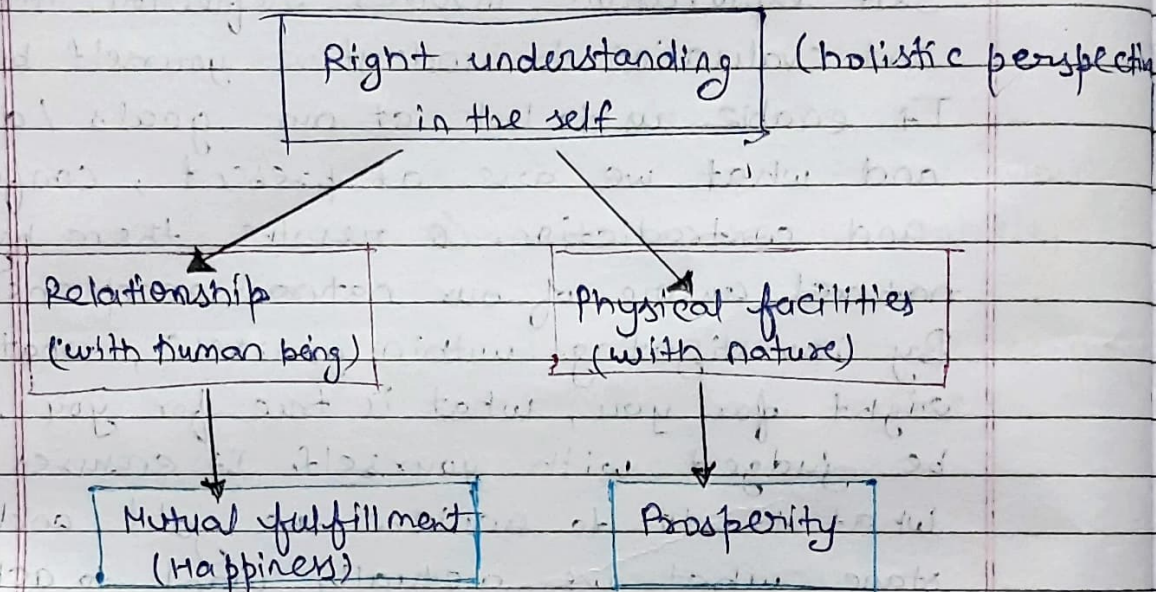 Right understanding (holistic perspectiv
in the self
Relationship
(with human being)
Physical facilities
(with nature)
Mutual fulfillment
(Happiness)
Prosperity